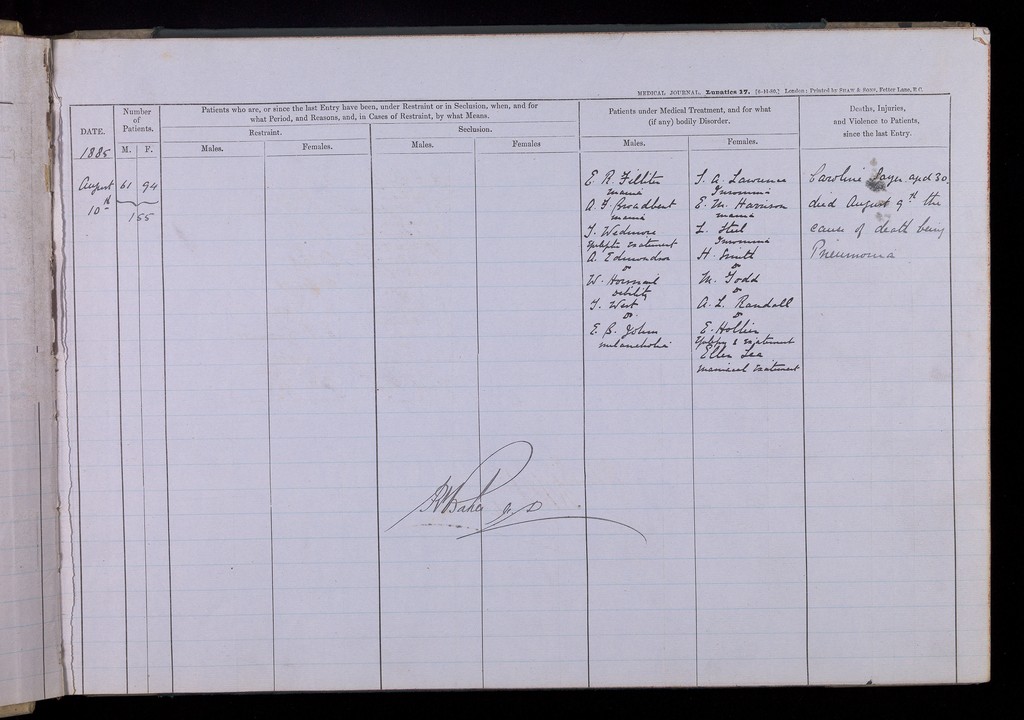 MEDICAL JOURNAL. Lunatics 17. [6-11-80.] London: Printed by SHAW & SONS, Fetter Lane, E.C.
DATE.
Number of Patients.
Patients who are, or since the last Entry have been, under Restraint or in Seclusion, when, and for
what Period, and Reasons, and, in Cases of Restraint, by what Means.
Patients under Medical Treatment, and for what
(if any) bodily Disorder.
Deaths, Injuries,
and Violence to Patients,
since the last Entry.
Restraint.
Seclusion.
M. F.
Males.
Females.
Males.
Females
Males.
Females.
1885
August
10th
61 94
155
E. R. Filliter
mania
A. F. Broadbent
mania
T. Wedmore
Epileptic excitement
A. Edmondson
Do
W. Horsnail
debility
T. West
Do
E. B. John
melancholia
S. A. Lawrence
Insomnia
E. M. Harrison
mania
L. Steel
Insomnia
H. Smith
Do
M. Todd
Do
A. L. Randall
Do
E. Hollin
Epilepsy & excitement
Ellen Lea
maniacal excitement
Caroline aged 30,
died August 9th the
cause of death being
Pneumonia
Baker